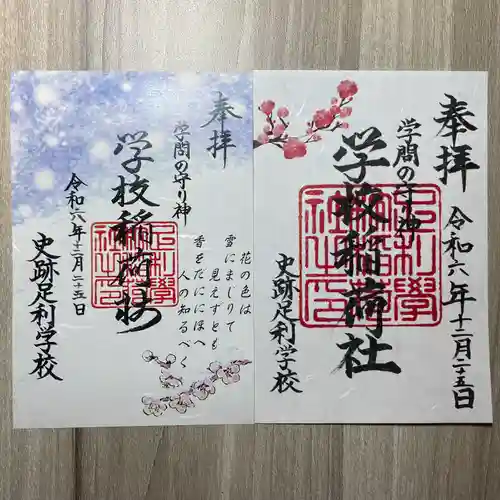 奉拝
学校稲荷社
学問の守り神
令和六年十二月二十五日
史跡足利学校
花の色は
雪にまじりて
見えずとも
香をだににほへ
人の知るべく
奉拝
学校稲荷社
学問の守り神
令和六年十二月二十五日
史跡足利学校